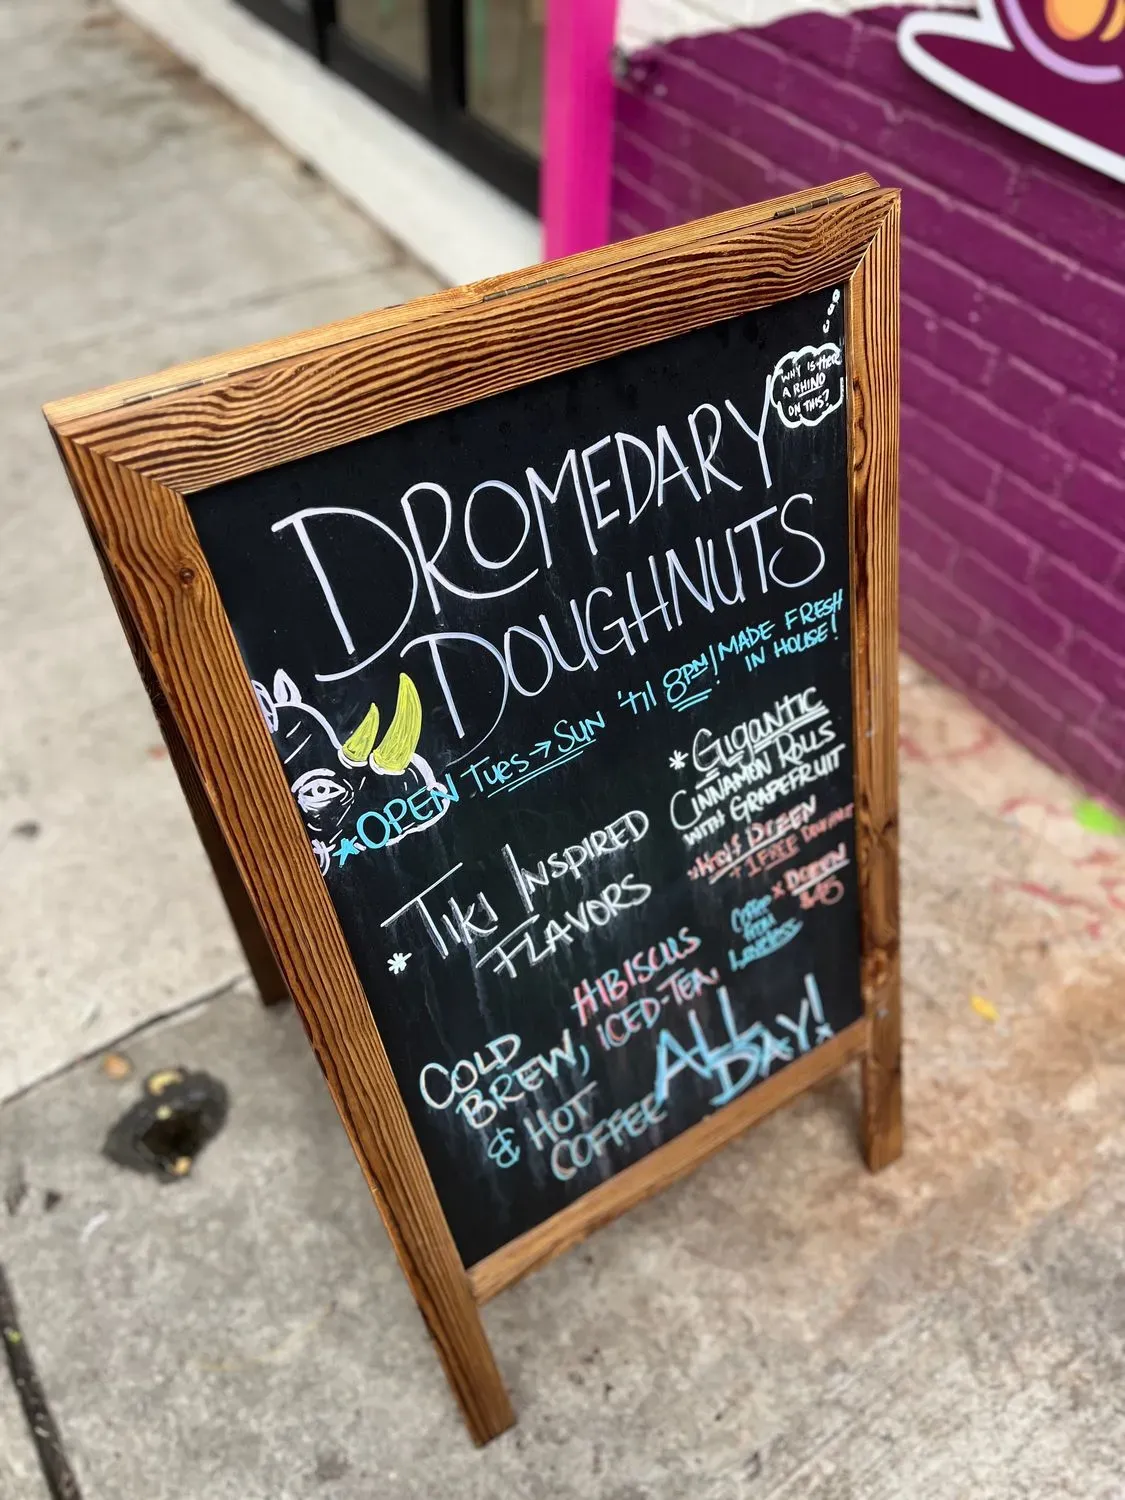 WHY IS THERE
A RHINO
ON THIS?
DROMEDARY
DOUGHNUTS
*OPEN TUES → SUN 'til 8PM! MADE FRESH
IN HOUSE!
* GIGANTIC
CINNAMON ROLLS
WITH GRAPEFRUIT
* TIKI INSPIRED
FLAVORS
*Half DOZEN
+ 1 FREE
* DOZEN
Coffee
FROM
HIBISCUS
ICED-TEA,
COLD
BREW,
& HOT
COFFEE
ALL
DAY!